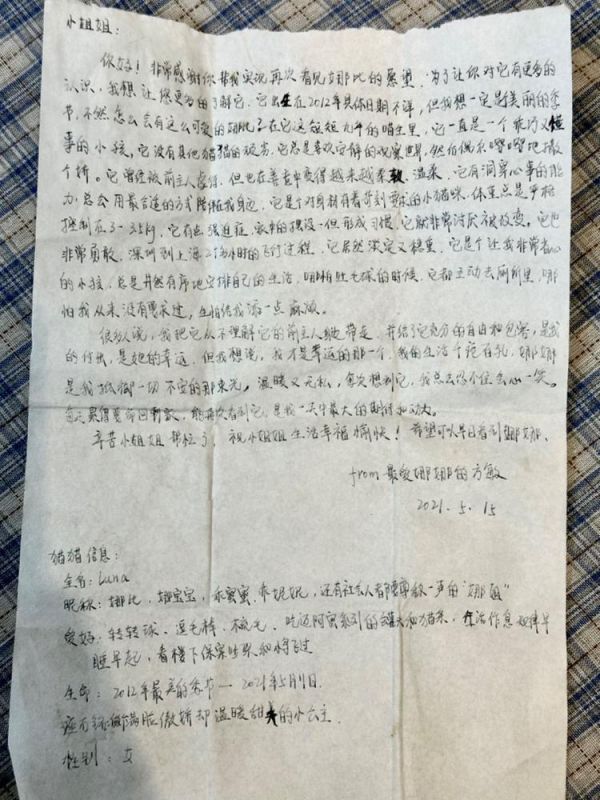 小姐姐：
你好！非常感谢你帮我实现再次看见娜比的愿望，为了让你对它有更多的
认识，我想让您更多的了解它，它出生在2012年具体日期不详，但我想一定是美丽的季
节，不然怎么会有这么可爱的胡眦？在它这短短九年的喵生里，它一直是一个乖巧又懂
事的小孩。它没有其他猫猫的顽劣，它总是喜欢安静的观察世界，然后偶尔嘤嘤地撒
个娇。它曾经被前主人虐待，但也在善意中变得越来越柔软，温柔，它有洞察心事的能
力，总会用最合适的方式陪伴在我身边，它是个对身材有着苛刻要求的小猫咪，体重总是严格
控制在3-3.2kg，它有点强迫症，家里的摆设一但形成习惯，它就非常讨厌被改变。它也
非常勇敢，深圳到上海2个小时的飞行过程，它居然淡定又稳重，它是个让我非常省心
的小孩，总是井然有序地安排自己的生活，明明吐毛球的时候，它都主动去厕所里，哪
怕我从来没有要求过，生怕给我添一点麻烦。
很多人说，我把它从不理解它的前主人她带走，并给了它充分的自由和包容，是我
的付出，是她的幸运，但我想说，我才是幸运的那一个，我的生活千疮百孔，娜娜
是我抵御一切不安的那束光。温暖又无私，每次想到它，我总会停不住会心一笑。
每天累得要命回到家，能再次看到它，是我一天中最大的期待和动力。
辛苦小姐姐帮忙了，祝小姐姐生活幸福愉快！希望可以早日看到娜娜、
from 最爱娜娜的方敏
2021.5.15
猫猫信息：
全名：Luna
昵称：娜比，娜宝宝，乖蜜蜜，乖妮妮，还有社会人都要尊称一声的“娜姐”
爱好：转转球、逗毛棒、梳毛、吃迈阿蜜系列的罐头和猫条，生活作息规律早
睡早起，看楼下保安吵架和将飞过
生卒：2012年最美的季节—2021年5月9日.
满脸傲娇却温暖甜美的小公主.
性别：女